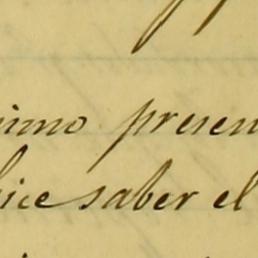 imo presen
hice saber el